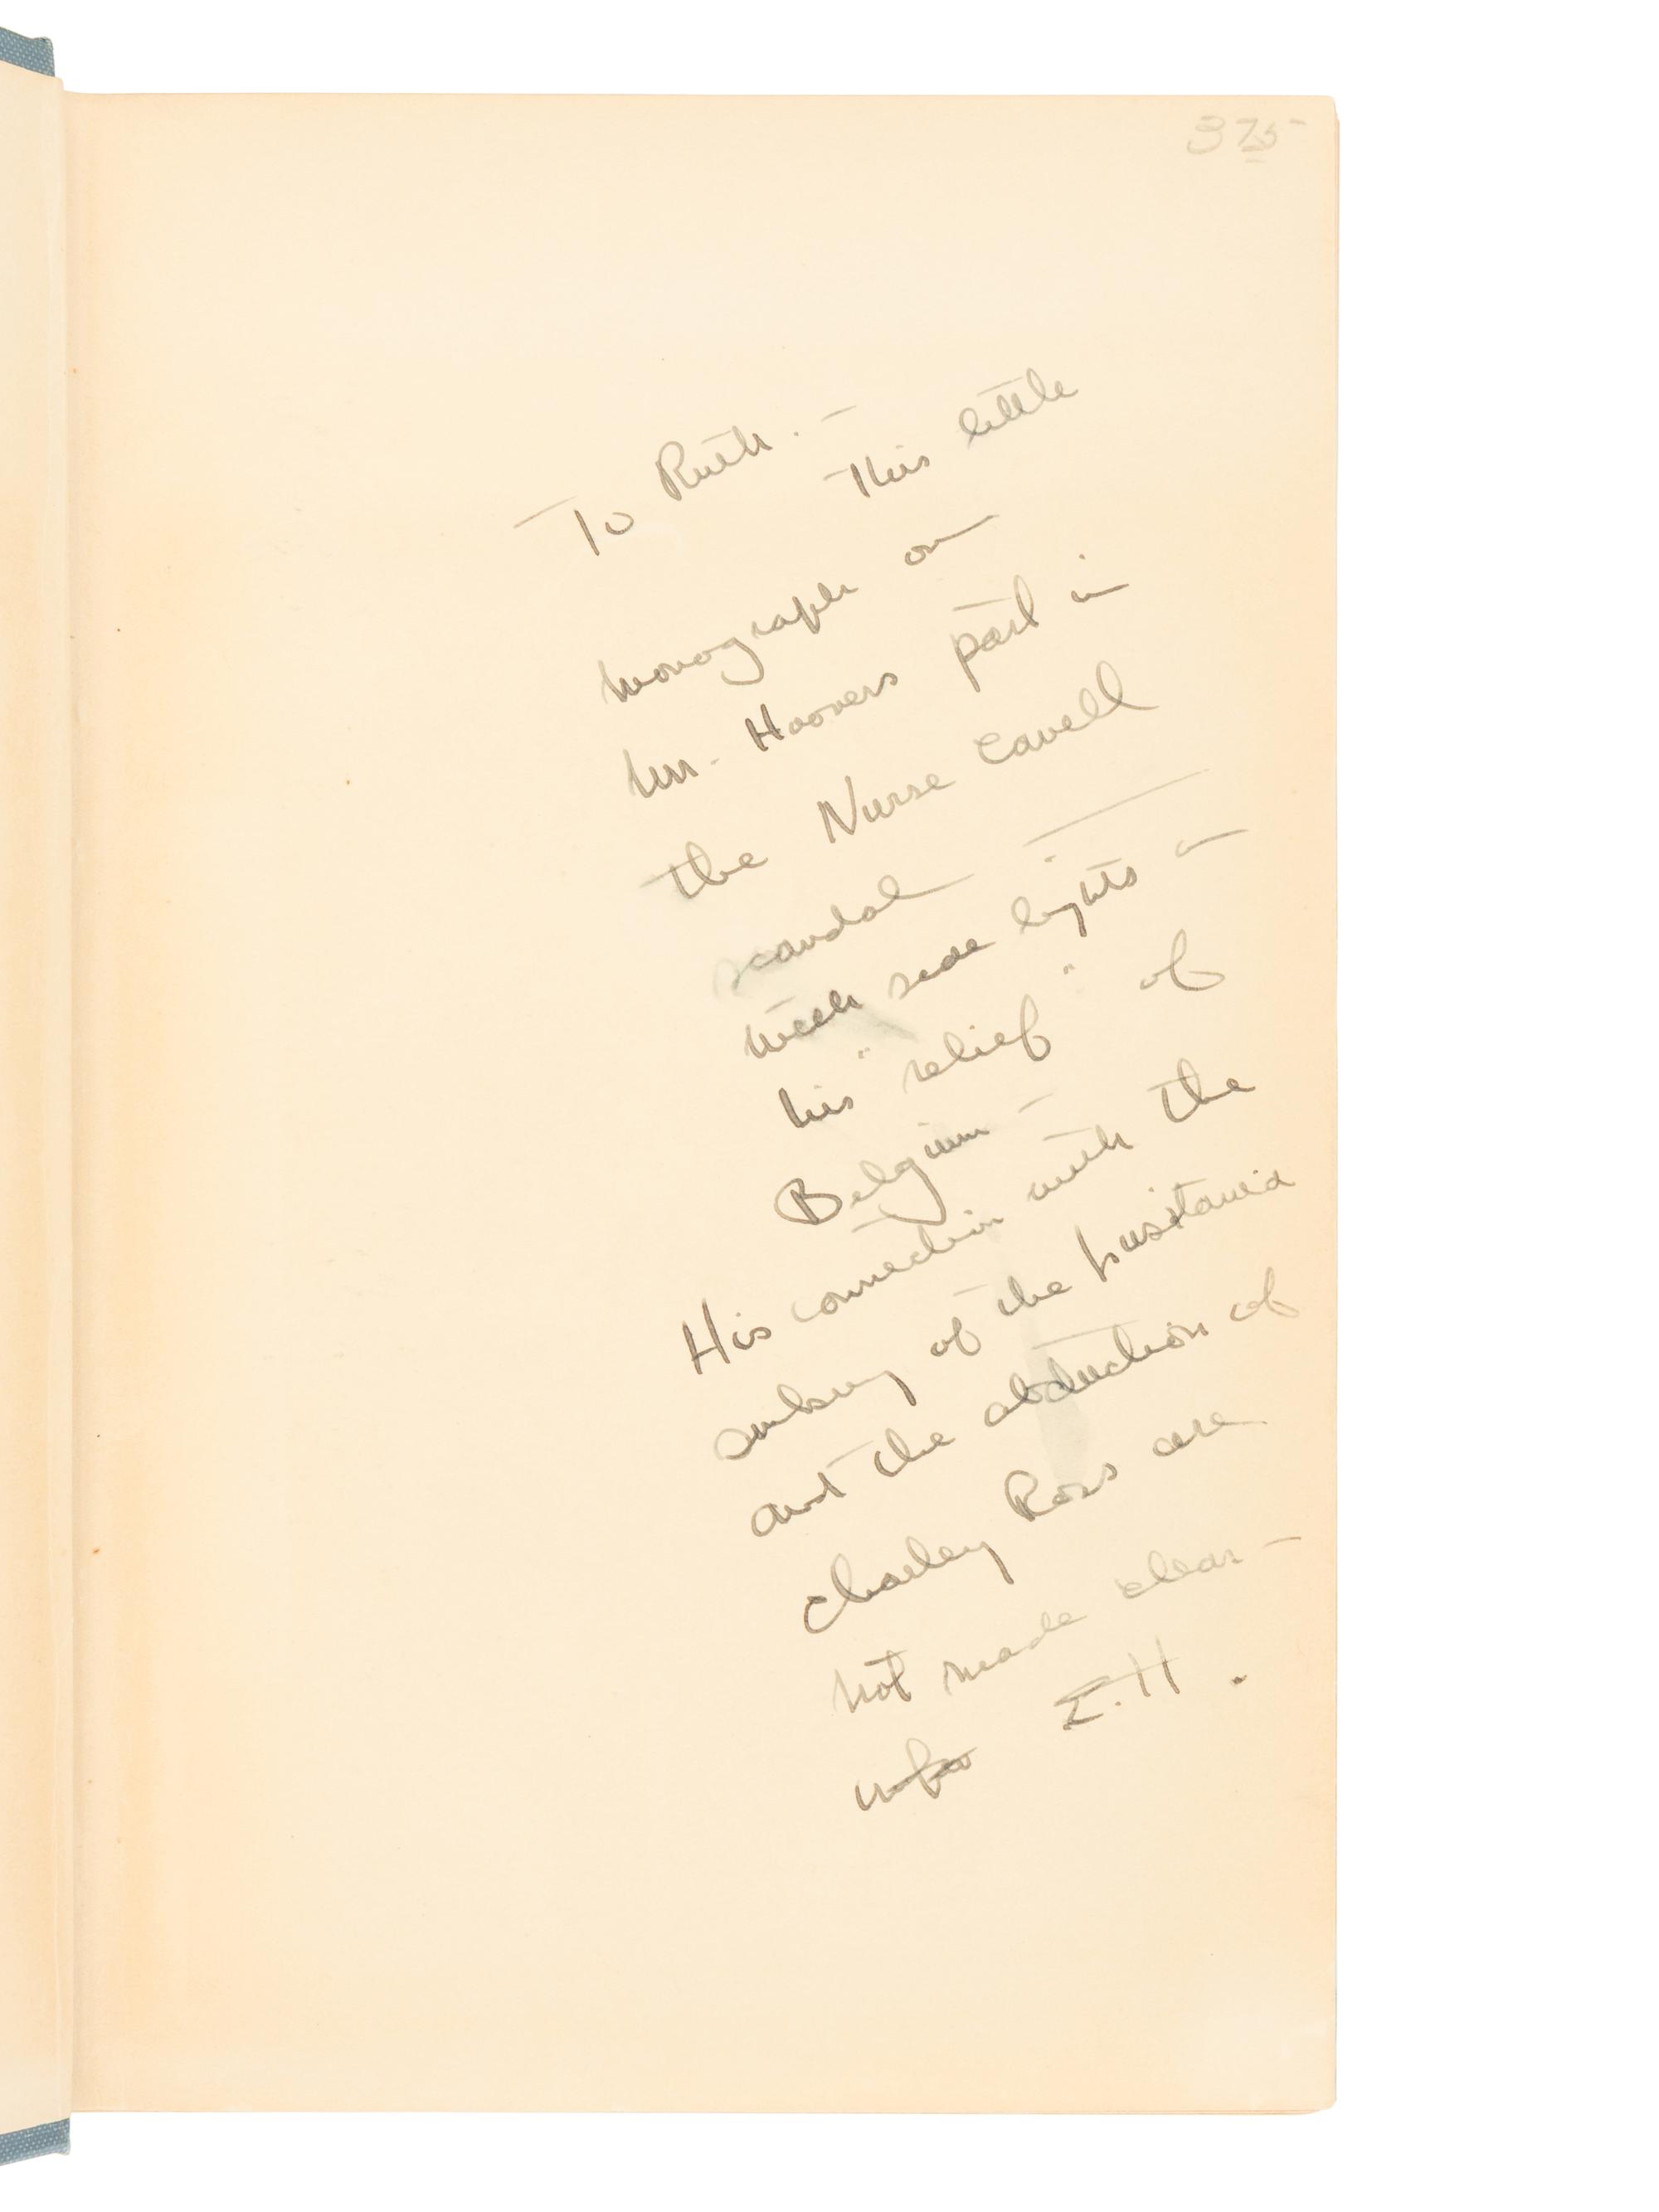 3 75
To Ruth. —
This little
monograph on
Mr. Hoovers part in
the Nurse Cavell
scandal —
With side lights on
his "relief" of
Belgium —
His connection with the
sinking of the Lusitania
and the abduction of
Charley Ross are
not made clear —
E.H.